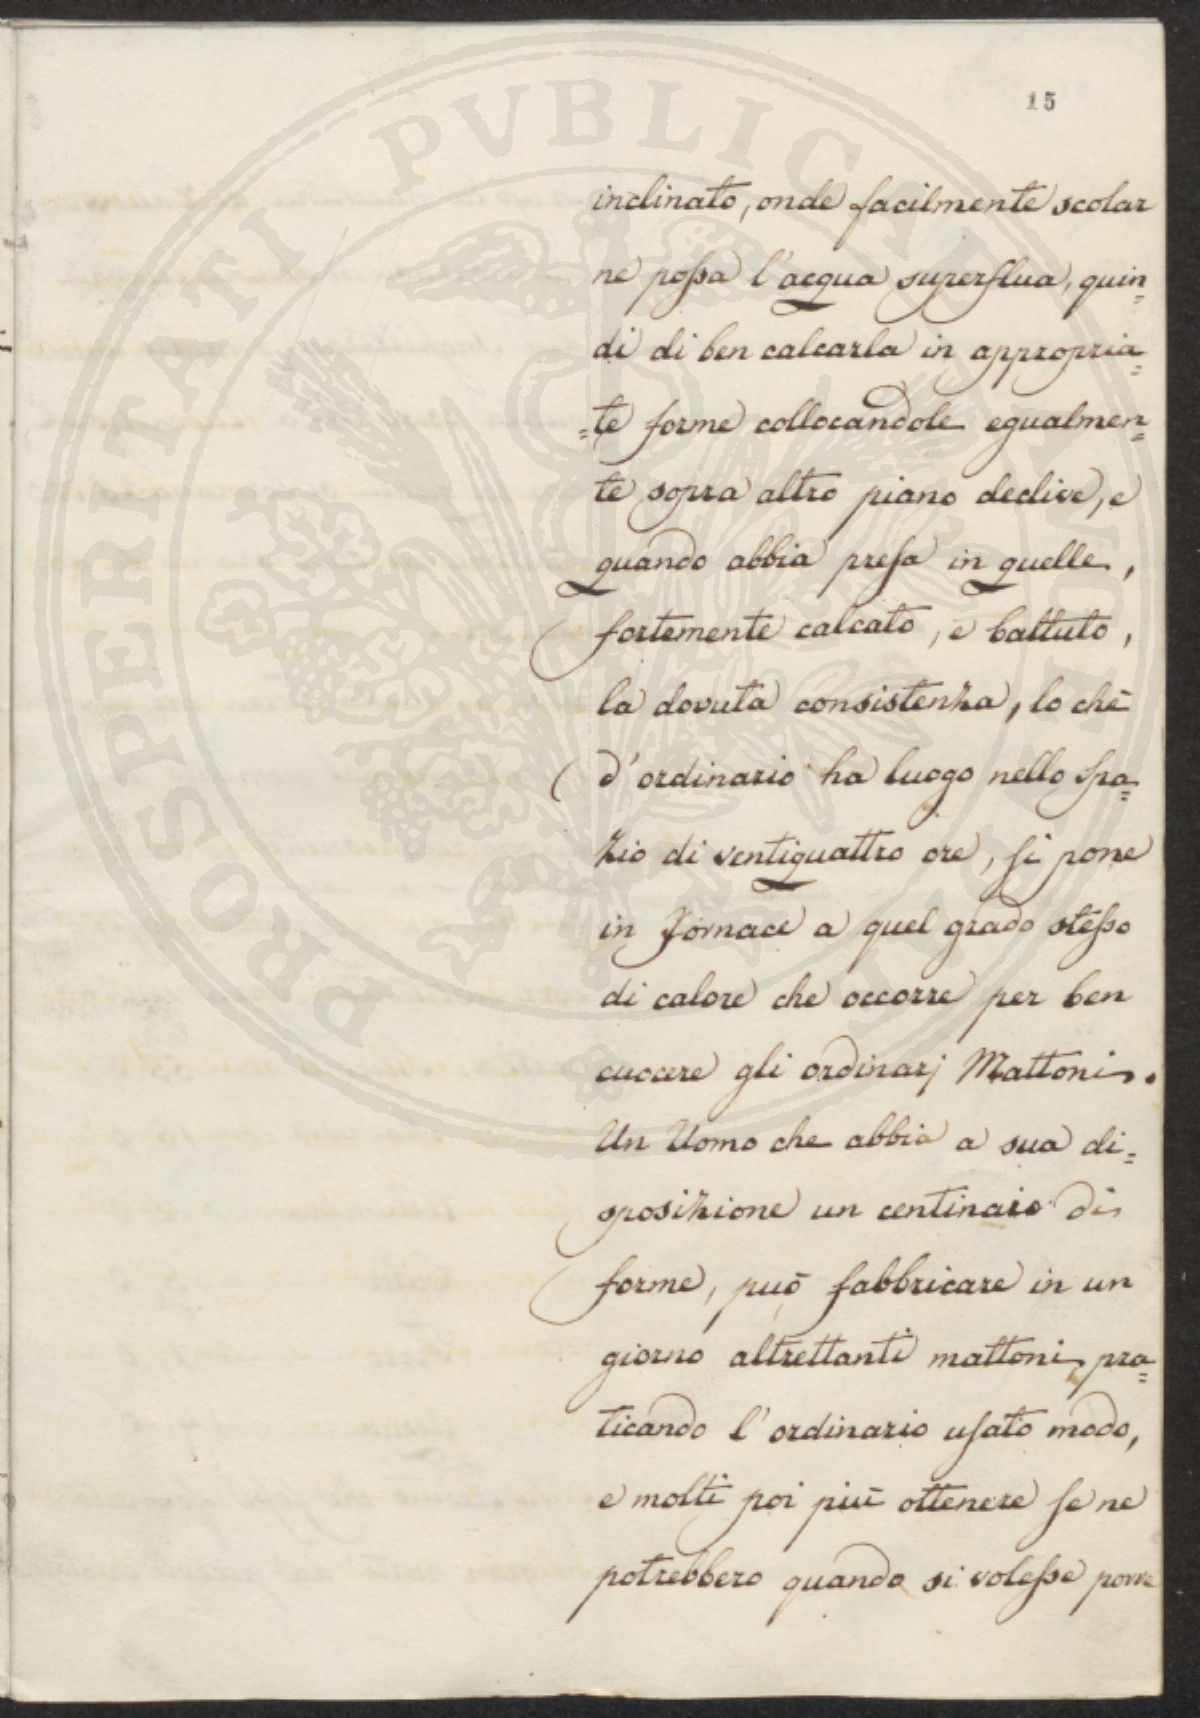 15
PROSPERITATI PVBLICAE
inclinato, onde facilmente scolar
ne possa l'acqua superflua, quin=
di di ben calcarla in appropria=
=te forme collocandole egualmen=
te sopra altro piano declive, e
quando abbia presa in quelle,
fortemente calcato, e battuto,
la dovuta consistenza, lo chè
d'ordinario ha luogo nello spa=
zio di ventiquattro ore, si pone
in Fornace a quel grado stesso
di calore che occorre per ben
cuocere gli ordinarj Mattoni.
Un Uomo che abbia a sua di=
sposizione un centinaio di
forme, può fabbricare in un
giorno altrettanti mattoni, pra=
ticando l'ordinario usato modo,
e molti poi più ottenere se ne
potrebbero quando si volesse porre